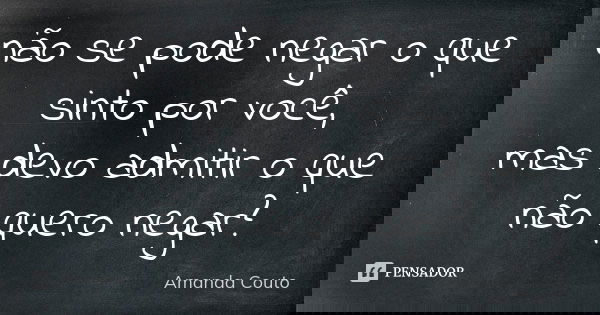 não se pode negar o que
sinto por você,
mas devo admitir o que
não quero negar?
Amanda Couto
PENSADOR